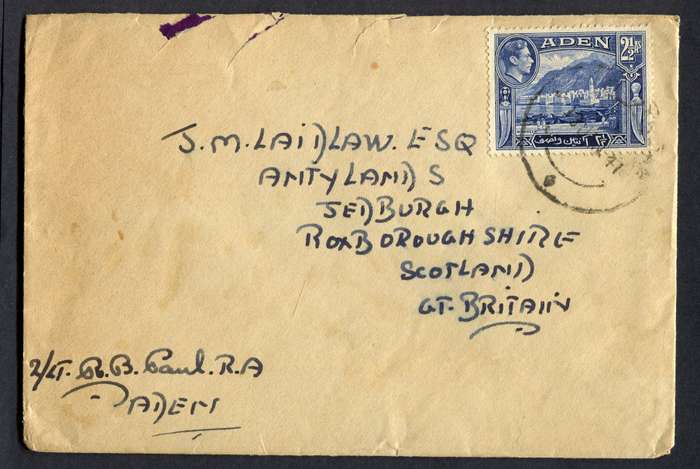 ADEN
2½ As
J.M. LAIDLAW. ESQ
ANTYLANDS
JEDBURGH
ROXBOROUGHSHIRE
SCOTLAND
GT. BRITAIN
2/LT. R.B. Paul. R.A
ADEN